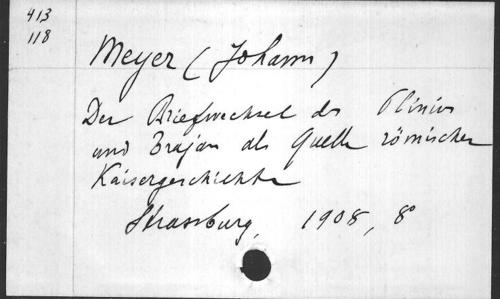 413
118
Meyer (Johann)
Der Briefwechsel des Plinius
und Trajan als Quelle römischer
Kaisergeschichte
Strassburg, 1908, 8°